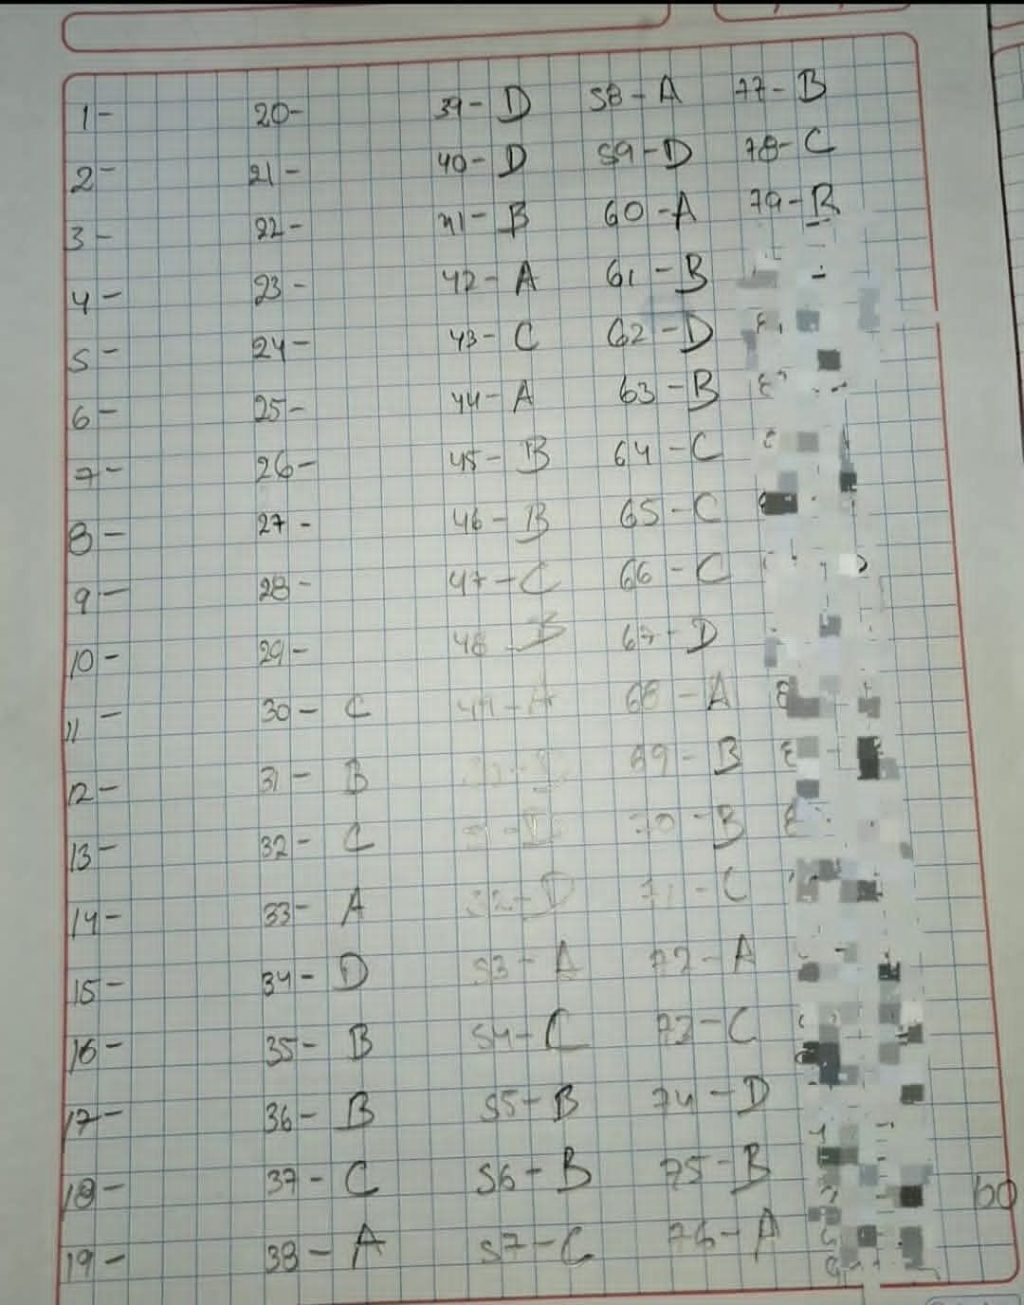 1- 20- 39- D 58- A 77- B
2- 21- 40- D 59- D 78- C
3- 22- 41- B 60- A 79- B
4- 23- 42- A 61- B
5- 24- 43- C 62- D
6- 25- 44- A 63- B
7- 26- 45- B 64- C
8- 27- 46- B 65- C
9- 28- 47- C 66- C
10- 29- 48 B 67- D
11- 30- C 49- A 68- A
12- 31- B 69- B
13- 32- C 70- B
14- 33- A 52- D 71- C
15- 34- D 53- A 72- A
16- 35- B 54- C 73- C
17- 36- B 55- B 74- D
18- 37- C 56- B 75- B 60
19- 38- A 57- C 76- A